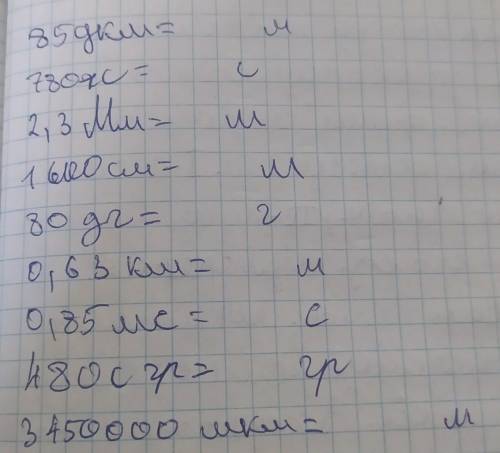 85дкм= м
780дс= с
2,3Мм= м
1600см= м
80дг= г
0,63км= м
0,85мс= с
480сгр= гр
3450000мкм= м